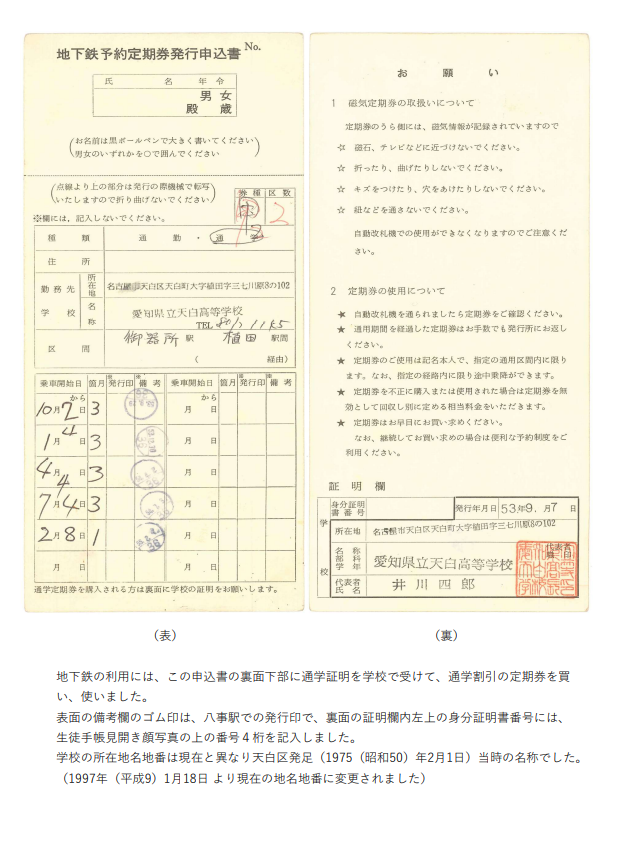 地下鉄予約定期券発行申込書 No.
氏 名 年令
男 女
殿 歳
(お名前は黒ボールペンで大きく書いてください)
(男女のいずれかを○で囲んでください)
(点線より上の部分は発行の際機械で転写)
(いたしますので折り曲げないでください)
券種 区数
2
※欄には,記入しないでください。
種 類 通 勤 ・ 通 学
住 所
勤務先 所在地 名古屋市天白区天白町大字植田字三七川原8の102
学 校 名称 愛知県立天白高等学校
TEL 801 1145
区 間 御器所 駅 植田 駅間
( 経由)
乗車開始日 箇月 ※発行印 ※備考 乗車開始日 箇月 ※発行印 ※備考
から から
10月2日 3 月 日
1月4日 3 月 日
4月4日 3 月 日
7月4日 3 月 日
2月8日 1 月 日
月 日 月 日
通学定期券を購入される方は裏面に学校の証明をお願いします。
お 願 い
1 磁気定期券の取扱いについて
定期券のうら側には、磁気情報が記録されていますので
☆ 磁石、テレビなどに近づけないでください。
☆ 折ったり、曲げたりしないでください。
☆ キズをつけたり、穴をあけたりしないでください。
☆ 紐などを通さないでください。
自動改札機での使用ができなくなりますのでご注意くだ
さい。
2 定期券の使用について
★ 自動改札機を通られましたら定期券をご確認ください。
★ 通用期間を経過した定期券はお手数でも発行所にお返し
ください。
★ 定期券のご使用は記名本人で、指定の通用区間内に限り
ます。なお、指定の経路内に限り途中乗降ができます。
★ 定期券を不正に購入または使用された場合は定期券を無
効として回収し別に定める相当料金をいただきます。
★ 定期券はお早目にお買い求めください。
なお、継続してお買い求めの場合は便利な予約制度をご
利用ください。
証 明 欄
学校
身分証明書番号 発行年月日 53年9.月7日
所在地 名古屋市天白区天白町大字植田字三七川原8の102
名称 部科 学年 愛知県立天白高等学校 代表者職印
代表者氏名 井川四郎
(表) (裏)
地下鉄の利用には、この申込書の裏面下部に通学証明を学校で受けて、通学割引の定期券を買
い、使いました。
表面の備考欄のゴム印は、八事駅での発行印で、裏面の証明欄内左上の身分証明書番号には、
生徒手帳見開き顔写真の上の番号４桁を記入しました。
学校の所在地名地番は現在と異なり天白区発足（1975（昭和50）年2月1日）当時の名称でした。
（1997年（平成9）1月18日 より現在の地名地番に変更されました）